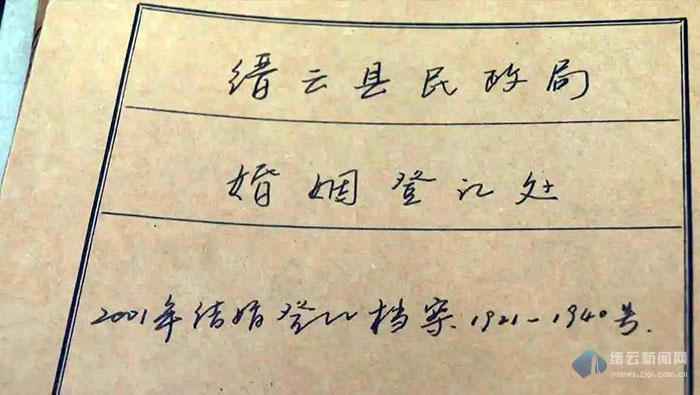 缙云县民政局
婚姻登记处
2001年结婚登记档案.1921-1940号.
缙云新闻网
jynews.zjol.com.cn